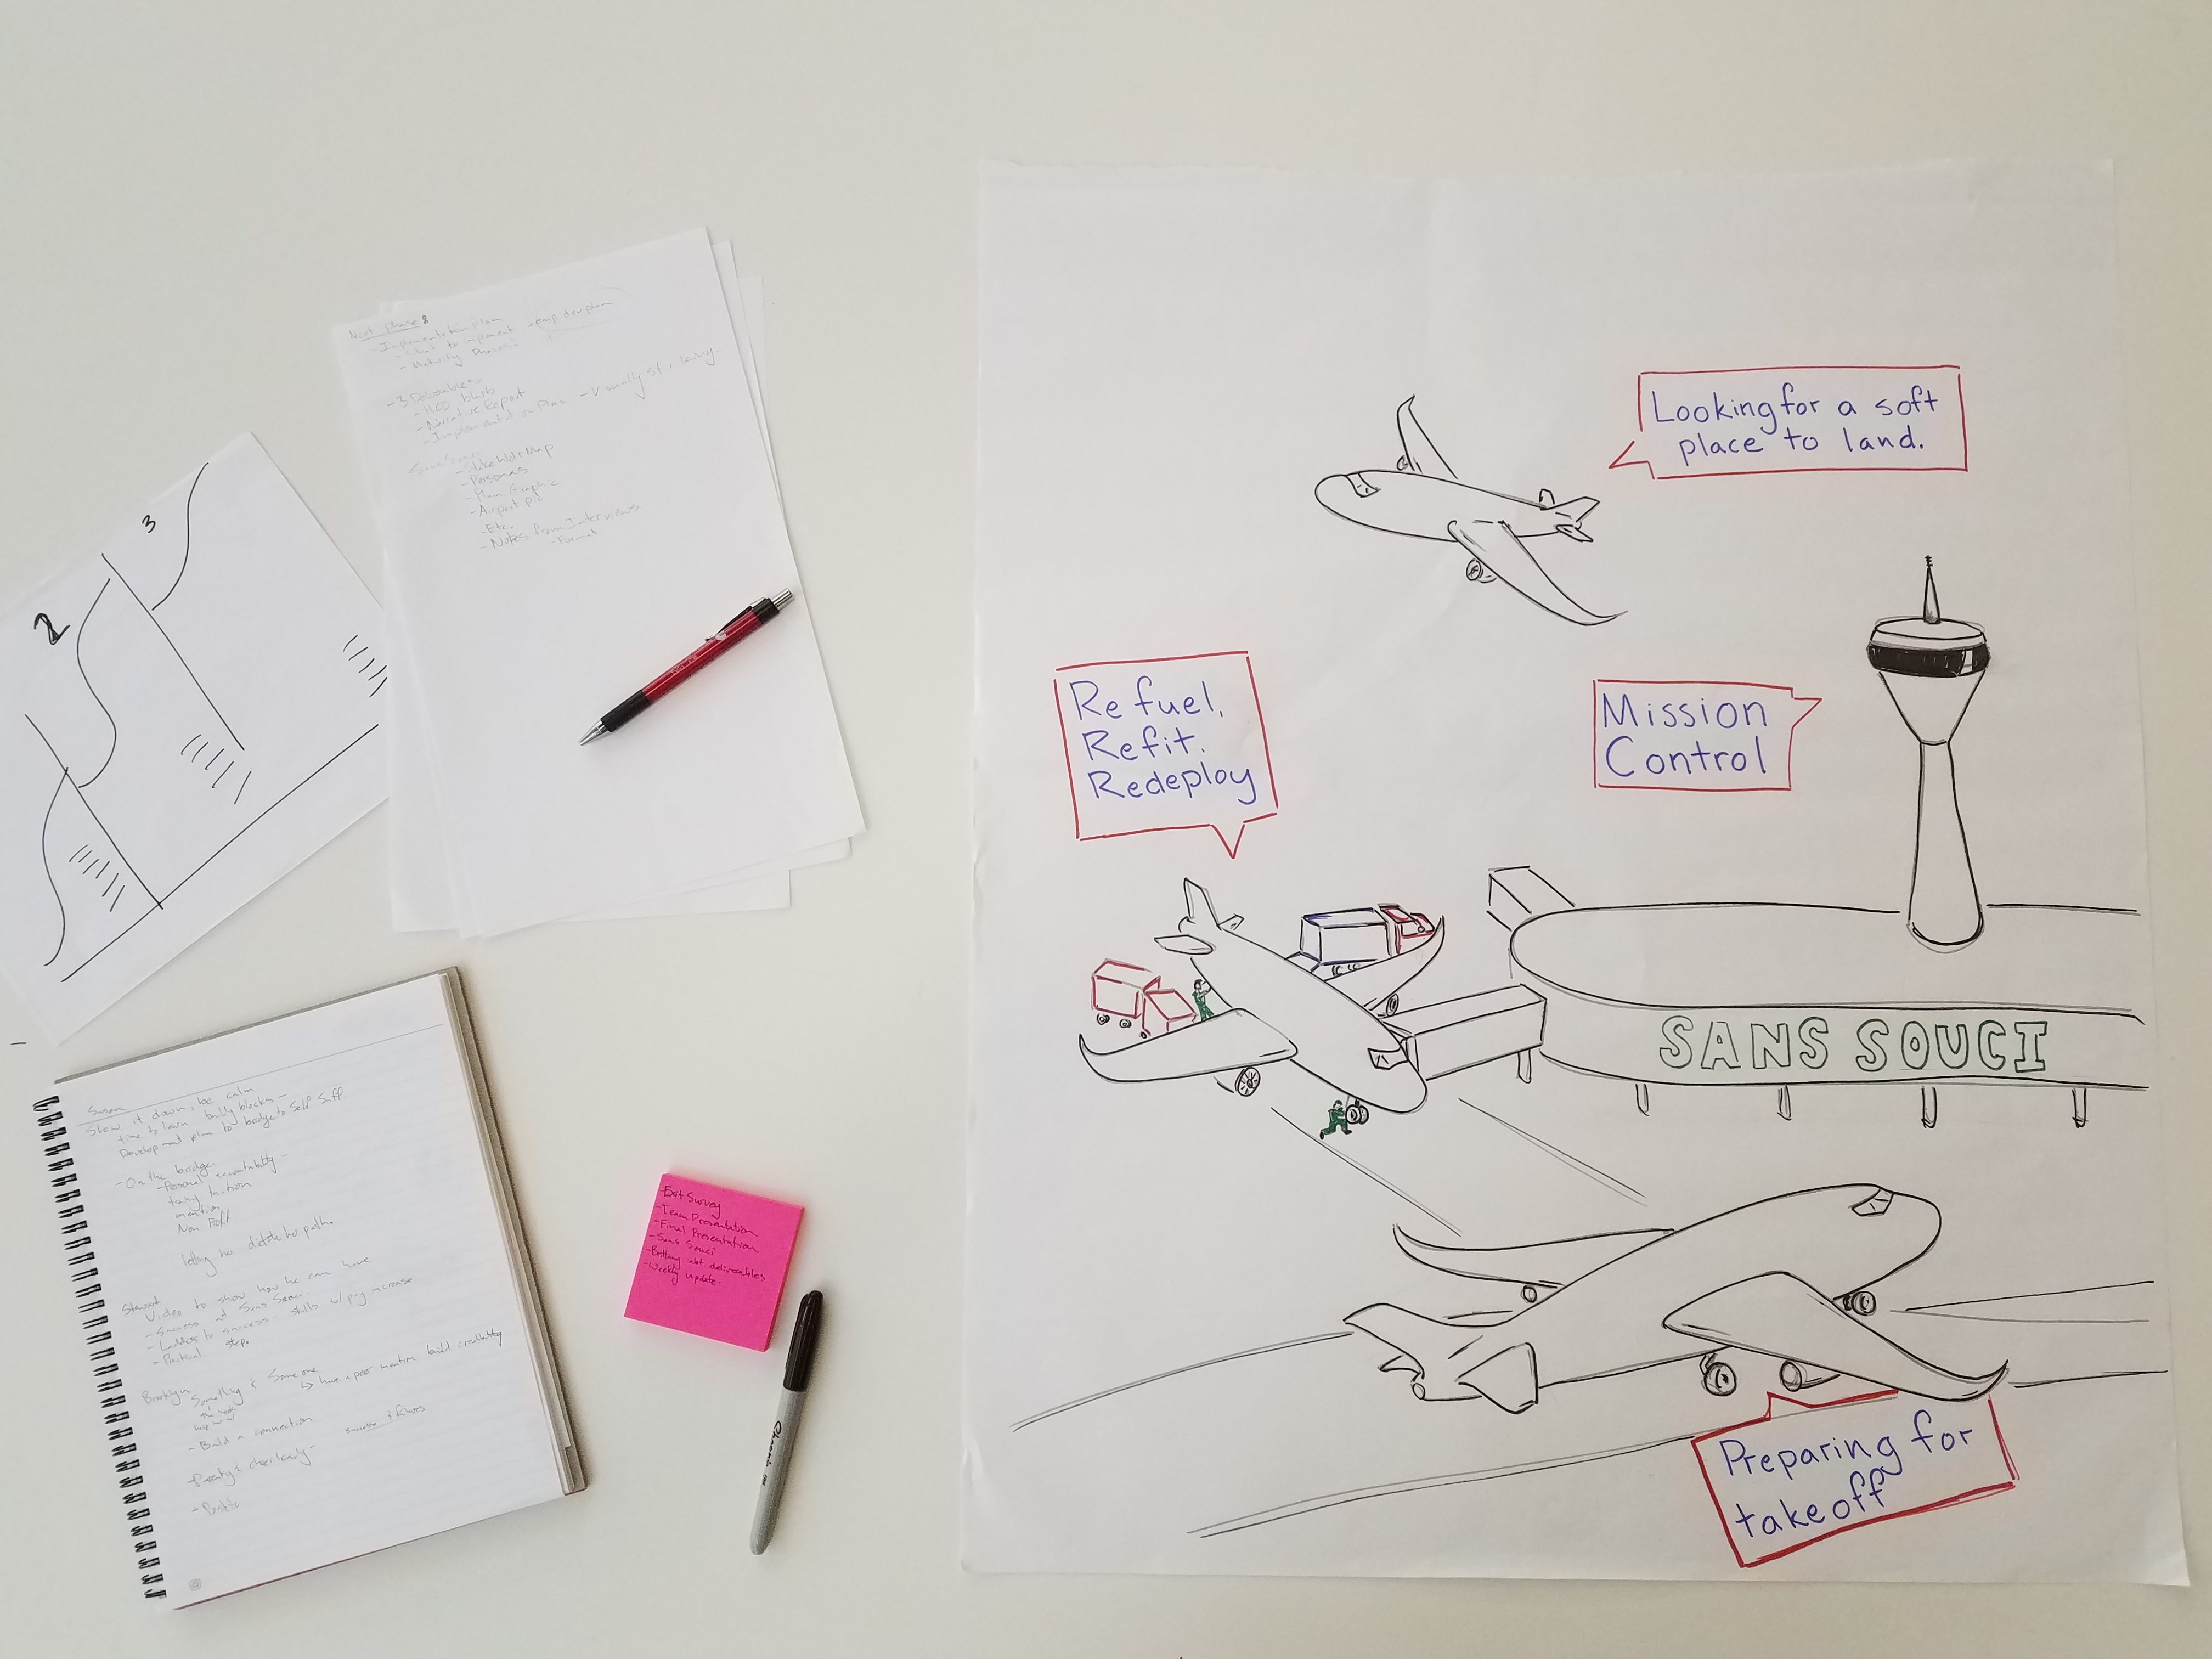 Next phase:
- Implementation Plan
- what to implement - emp dev plan
- Maturity Phases
- 3 Deliverables
- HCD blurb
- Narrative Report
- Implementation Plan - Visually
Sans Souci
- Stakehldr Map
- Personas
- Plan Graphic
- Airport pic
- Etc.
- Notes from Interviews
- Format
2
3
Susan
Slow it down, be calm
time to learn blocks -
Development plan to bridge to Self Suff
- On the bridge
- Personal accountability -
Non Profit
letting her dictate her path.
Stewart
Video to show how he can have
- Success at Sans Souci.
- Ladders to success - skills w/ pay increase
- Practical steps
Brooklyn
Something & Someone
have a peer mention build credibility
- Build a connection
- Positive
Exit Survey
- Team Presentation
- Final Presentation
- Sans Souci
- Brittany not deliverables
- Weekly update.
Sharpie
Looking for a soft
place to land.
Refuel.
Refit.
Redeploy
Mission
Control
SANS SOUCI
Preparing for
takeoff